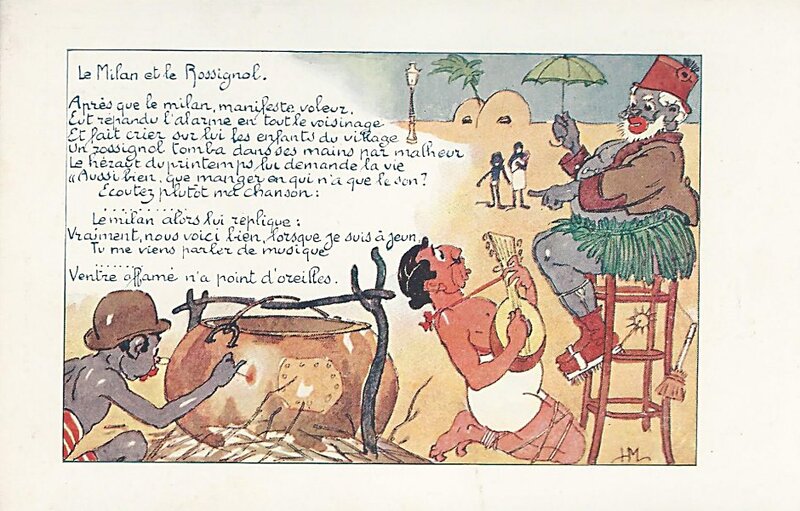 Le Milan et le Rossignol.
Après que le milan, manifeste voleur,
Eut répandu l'alarme en tout le voisinage
Et fait crier sur lui les enfants du village
Un rossignol tomba dans ses mains par malheur
Le héraut du printemps lui demande la vie
"Aussi bien, que manger en qui n'a que le son?
Ecoutez plutôt ma chanson:
..........
Le milan alors lui réplique:
Vraiment, nous voici bien, lorsque je suis à jeun,
Tu me viens parler de musique
..........
Ventre affamé n'a point d'oreilles.
HM